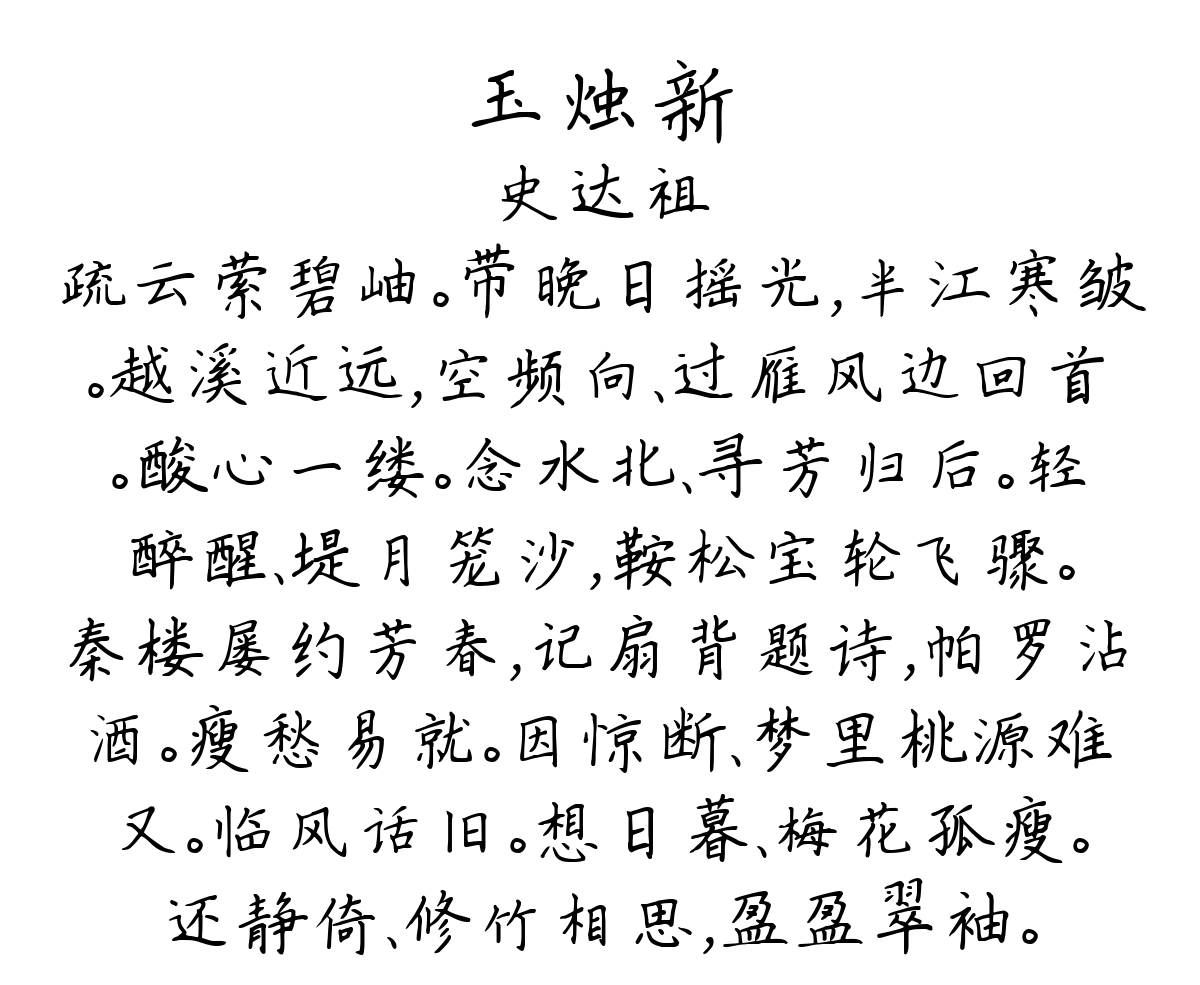 玉烛新
史达祖
疏云萦碧岫。带晚日摇光,半江寒皱
。越溪近远,空频向、过雁风边回首
。酸心一缕。念水北、寻芳归后。轻
醉醒、堤月笼沙,鞍松宝轮飞骤。
秦楼屡约芳春,记扇背题诗,帕罗沾
酒。瘦愁易就。因惊断、梦里桃源难
又。临风话旧。想日暮、梅花孤瘦。
还静倚、修竹相思,盈盈翠袖。